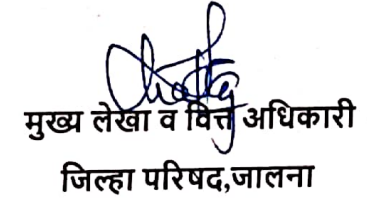 मुख्य लेखा व वित्त अधिकारी
जिल्हा परिषद,जालना